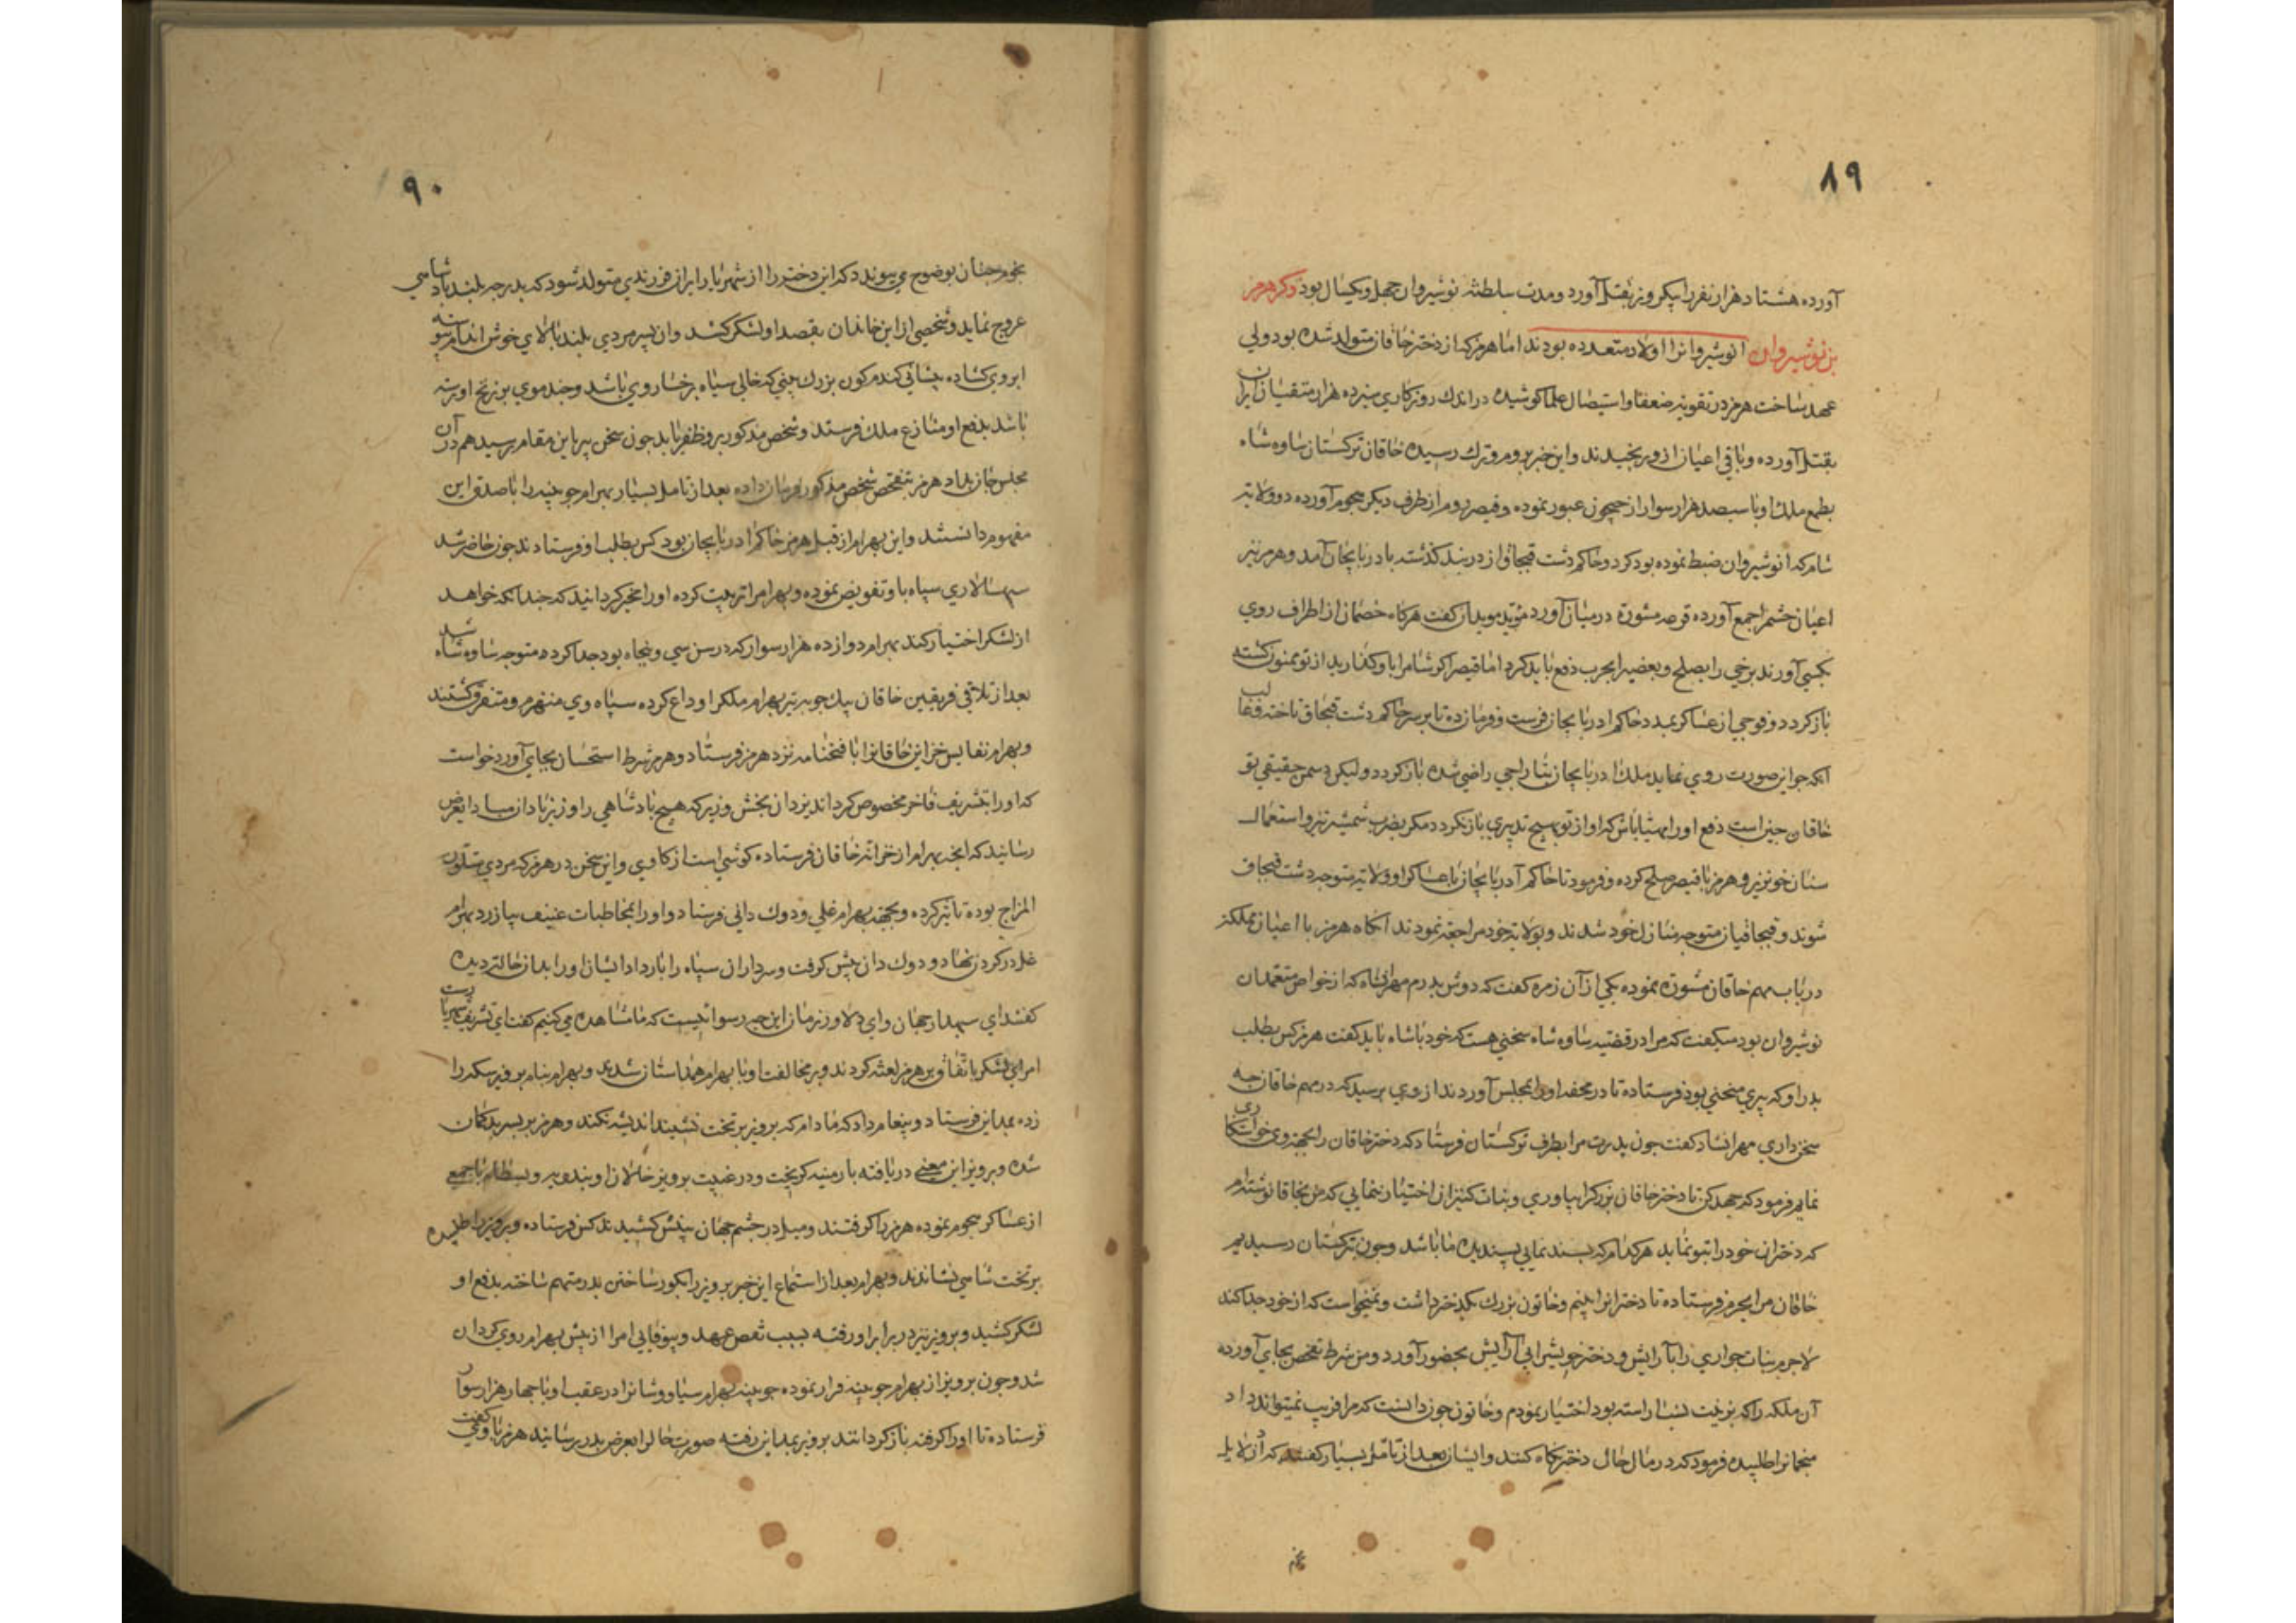 ٨٩
آورده هشتاد هزار نفر را بیکروز بقتل آورد ومدت سلطنة نوشیروان چهل ویکسال بود ذکر هرمز
بن نوشیروان انوشیروانرا اولاد متعدده بودند اما هرمز که از دختر خاقان متولد شده بود ولی
عهد ساخت هرمز در تقویة ضعفا واستیصال علما کوشیده در اندك روزکاری سیزده هزار متقیان ایران
بقتل آورده وباقی اعیان ازو برنجیدند واین خبر بروم وترك رسیده خاقان ترکستان ساوه شاه
بطمع ملك او با سیصد هزار سوار از جیحون عبور نموده وقیصر روم از طرف دیکر هجوم آورده دو ولایة
شام که انوشیروان ضبط نموده بود کرد وحاکم دشت قبچاق از دربند کذشته بادربایجان آمد وهرمز نیز
اعیان حشم را جمع آورده قرعه مشورة در میان آورد مؤبد موبدان کفت هرکاه خصمان از اطراف روی
بکسی آورند برخی را بصلح وبعضی را بحرب دفع باید کرد اما قیصر اکر شام را باو کذارید از تو ممنون کشته
باز کردد وفوجی از عساکر بمدد حاکم ادربایجان فرست وفرمان ده تا بر سر حاکم دشت قبچاق تاخته غالب
آنکه جو این صورت روی نماید ملك ادربایجان بتاراجی راضی شده باز کردد ولیکن دشمن حقیقی تو
خاقان چین است دفع او را مهیا باش که او از تو بهیچ تدبیری باز نکردد مکر بضرب شمشیر تیز واستعمال
سنان خونریز وهرمز با قیصر صلح کرده وفرمود تا حاکم آدربایجان با عساکر او ولایة متوجه دشت قبچاق
شوند وقبچاقیان متوجه منازل خود شدند وبولایة خود مراجعة نمودند آنکاه هرمز با اعیان مملکت
در باب مهم خاقان مشورة نموده یکی از آن زمره کفت که دوش پدرم مهران شاد که از خواص معتمدان
نوشیروان بود میکفت که مرا در قضیه ساوه شاه سخنی هست که خود با شاه باید کفت هرمز کس بطلب
پدر او که پیری منحنی بود فرستاده تا در محفه او را بمجلس آوردند از وی پرسید که در مهم خاقان چه
سخن داری مهرانشاد کفت چون پدرت مرا بطرف ترکستان فرستاد که دختر خاقان را بجهة وی خواستکاری
نمایم فرمود که جهد کن تا دختر خاقان بزرك را بیاوری وبنات کنیزان اختیار ننمایی که من بخاقان نوشته ام
که دختران خود را بتو نماید هر کدام که پسند نمایی پسندیده ما باشد وچون بترکستان رسیدیم
خاقان مرا بحرم فرستاده تا دخترانرا بینم وخاتون بزرك یکدختر داشت ونمیخواست که از خود جدا کند
لاجرم بنات جواری را با آرایش ودختر خویش را بی آرایش بحضور آورد ومن شرط تفحص بجای آورده
آن ملکه را که بزینت نسب آراسته بود اختیار نمودم وخاتون چون دانست که مرا فریب نمیتواند داد
منجمانرا طلبیده فرمود که در مال حال دختر نکاه کنند وایشان بعد از تامل بسیار کفتند که از دلایل
نجم
٩٠
نجوم چنان بوضوح می پیوندد که این دختر را از شهریار ایران فرزندی متولد شود که بدرجه بلند پادشاهی
عروج نماید وشخصی از این خاندان بقصد او لشکر کشد وآن پسر مردی بلند بالای خوش اندام پیوسته
ابروی کشاده پیشانی کندم کون بزرك بینی که خالی سیاه بر رخسار وی باشد وچند موی بر زنخ او رسته
باشد بدفع او منازع ملك فرستد وشخص مذکور برو ظفر یابد چون سخن پیر باین مقام رسید هم در آن
مجلس جان بداد هرمز بتفحص شخص مذکور فرمان داده بعد از تامل بسیار بهرام جوبینه را با صدق این
مفهوم دانستند واین بهرام از قبل هرمز حاکم ادربایجان بود کس بطلب او فرستادند چون حاضر شد
سپهسالاری سپاه باو تفویض نموده وبهرام را تربیت کرده او را مخیر کردانید که چندانکه خواهد
از لشکر اختیار کند بهرام دوازده هزار سوار که در سن سی وپنجاه بود جدا کرده متوجه ساوه شاه شد
بعد از تلاقی فریقین خاقان بیك چوبه تیر بهرام ملك را وداع کرده سپاه وی منهزم ومتفرق کشتند
وبهرام نفایس خزاین خاقانرا با فتحنامه نزد هرمز فرستاد وهرمز شرط استحسان بجای آورد خواست
که او را بتشریف فاخر مخصوص کرداند یزدان بخش وزیر که هیچ پادشاهی را وزیر نادان مباد بعرض
رسانید که آنچه بهرام از خزانه خاقان فرستاده کوشی است از کاوی واین سخن در هرمز که مردی متلون
المزاج بوده تاثیر کرده وبجهة بهرام غلی ودوك دانی فرستاد واو را بمخاطبات عنیف بیازرد بهرام
غل در کردن نهاد ودوك دان پیش کرفت وسرداران سپاه را بار داد ایشان او را بدان حالت دیده
کفتند ای سپهدار جهان وای دلاور زمان این چه رسوائیست که ما مشاهده می کنیم کفت ای تشریف
امرای لشکر باتفاق بر هرمز لعنة کردند وبر مخالفت او با بهرام همداستان شدند وبهرام بنام پرویز سکه را
زده بمداین فرستاد وپیغام داد که مادام که پرویز بر تخت نشیند اندیشه نکند وهرمز بر پسر بدکمان
شده وپرویز این معنی دریافته بارمنیه کریخت ودر غیبت پرویز خالان او بندویه وبسطام با جمعی
از عساکر هجوم نموده هرمز را کرفتند ومیل در چشم جهان بینش کشیدند کس فرستاده وپرویز را طلبیده
بر تخت شاهی نشاندند وبهرام بعد از استماع این خبر پرویز را بکور ساختن پدر متهم ساخته بدفع او
لشکر کشید وپرویز نیز در برابر او رفته بسبب نقض عهد وبیوفایی امرا از پیش بهرام روی کردان
شد وچون پرویز از بهرام جوبینه فرار نموده جوبینه بهرام سیاوشانرا در عقب او با چهار هزار سوار
فرستاده تا او را کرفته باز کردانند پرویز بمداین رفته صورت حال را بعرض پدر رسانید هرمز با وی کفت